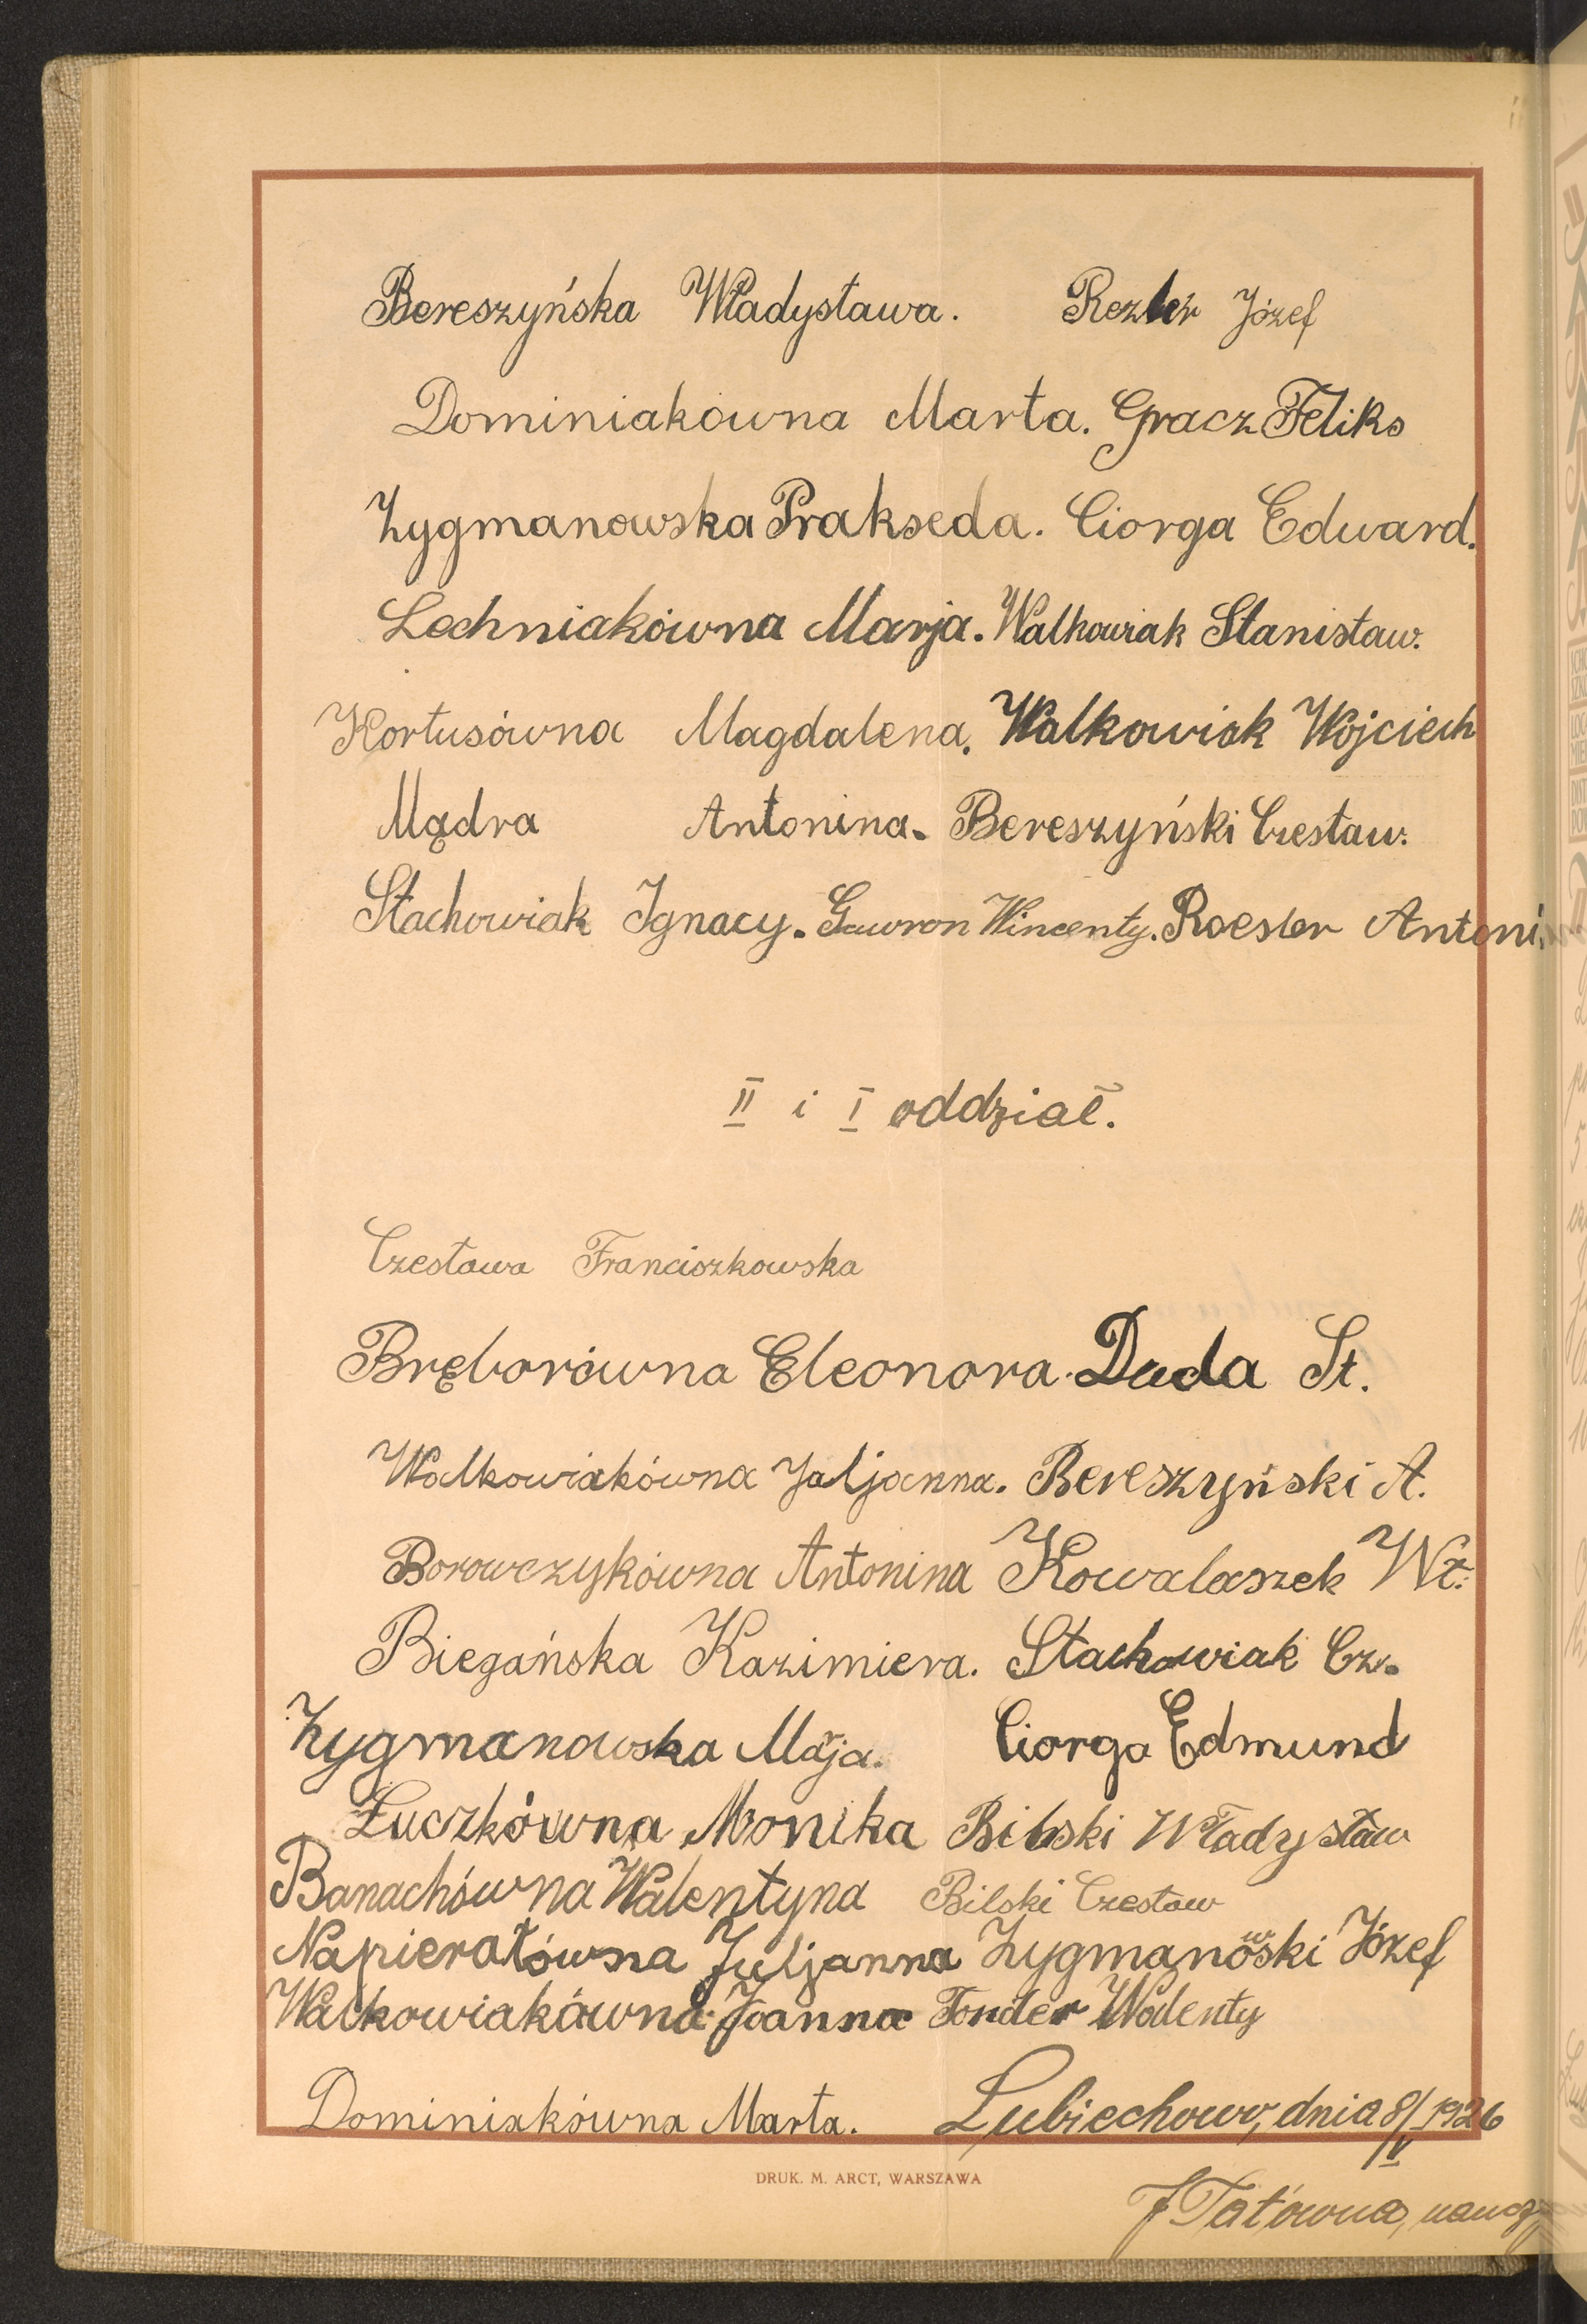 Bereszyńska Władysława. Rezler Józef
Dominiakówna Marta. Gracz Feliks
Zygmanowska Prakseda. Ciorga Edward.
Lechniakówna Marja. Walkowiak Stanisław.
Kortusówna Magdalena. Walkowiak Wojciech
Mądra Antonina. Bereszyński Czesław.
Stachowiak Ignacy. Gawron Wincenty. Roesler Antoni.
II i I oddział.
Czesława Franciszkowska
Bręborówna Eleonora. Duda St.
Walkowiakówna Juljanna. Bereszyński A.
Borowczykówna Antonina Kowalaszek Wł.
Biegańska Kazimiera. Stachowiak Cz.
Zygmanowska Marja. Ciorga Edmund
Łuczkówna Monika Bilski Władysław
Banachówna Walentyna Bilski Czesław
Napierałówna Juljanna Zygmanowski Józef
Walkowiakówna Joanna Tonder Walenty
Dominiakówna Marta. Lubiechowo, dnia 8/V 1926
DRUK. M. ARCT, WARSZAWA